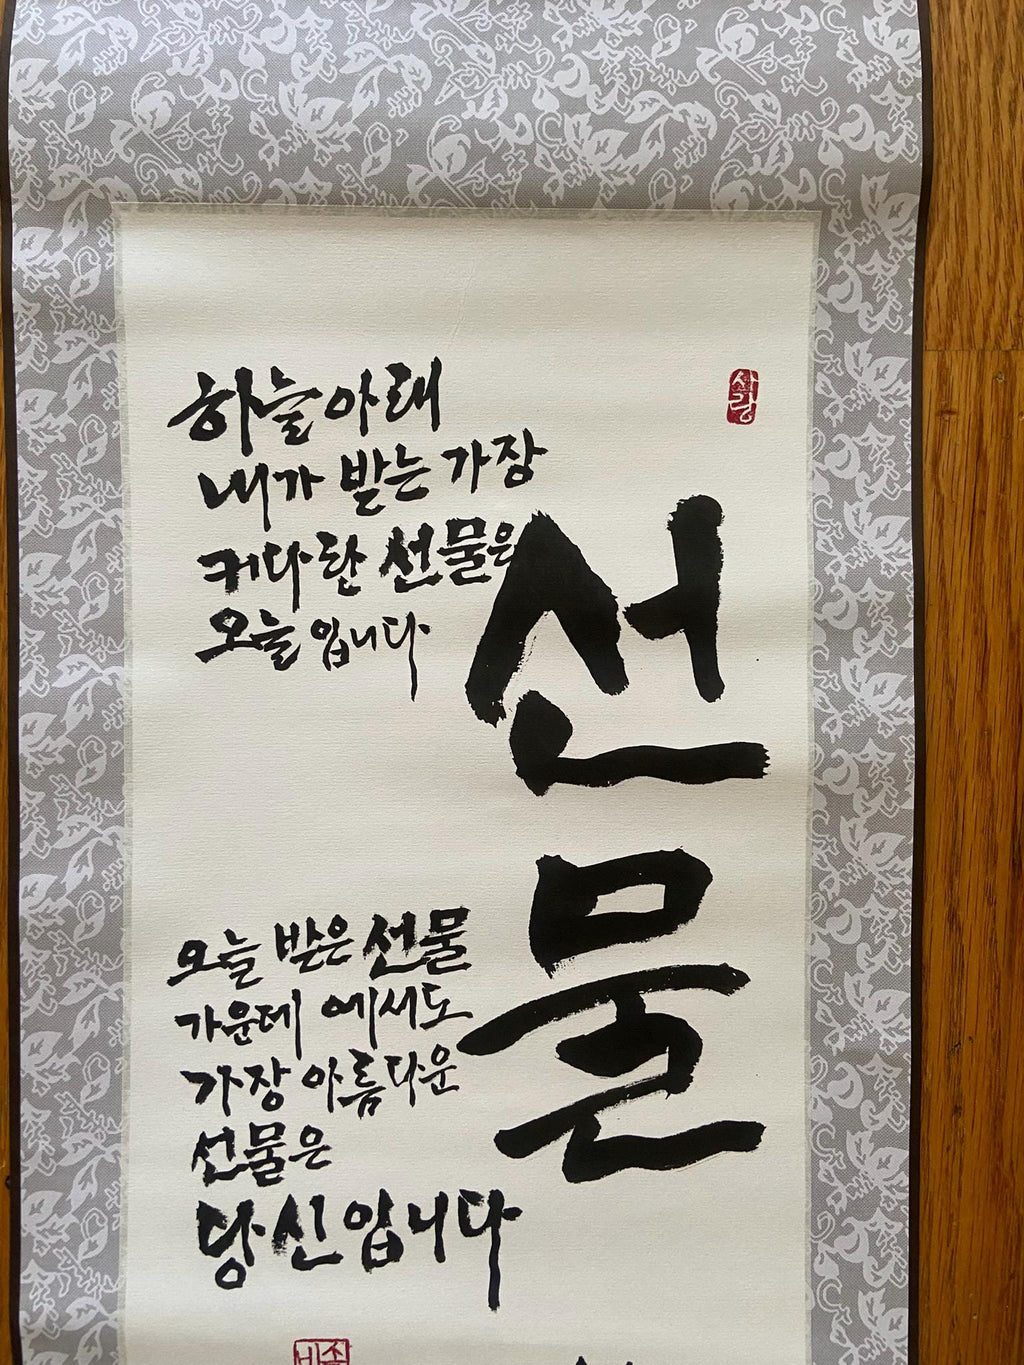 사랑
선물
하늘아래
내가 받는 가장
커다란 선물은
오늘입니다
오늘 받은 선물
가운데 에서도
가장 아름다운
선물은
당신입니다